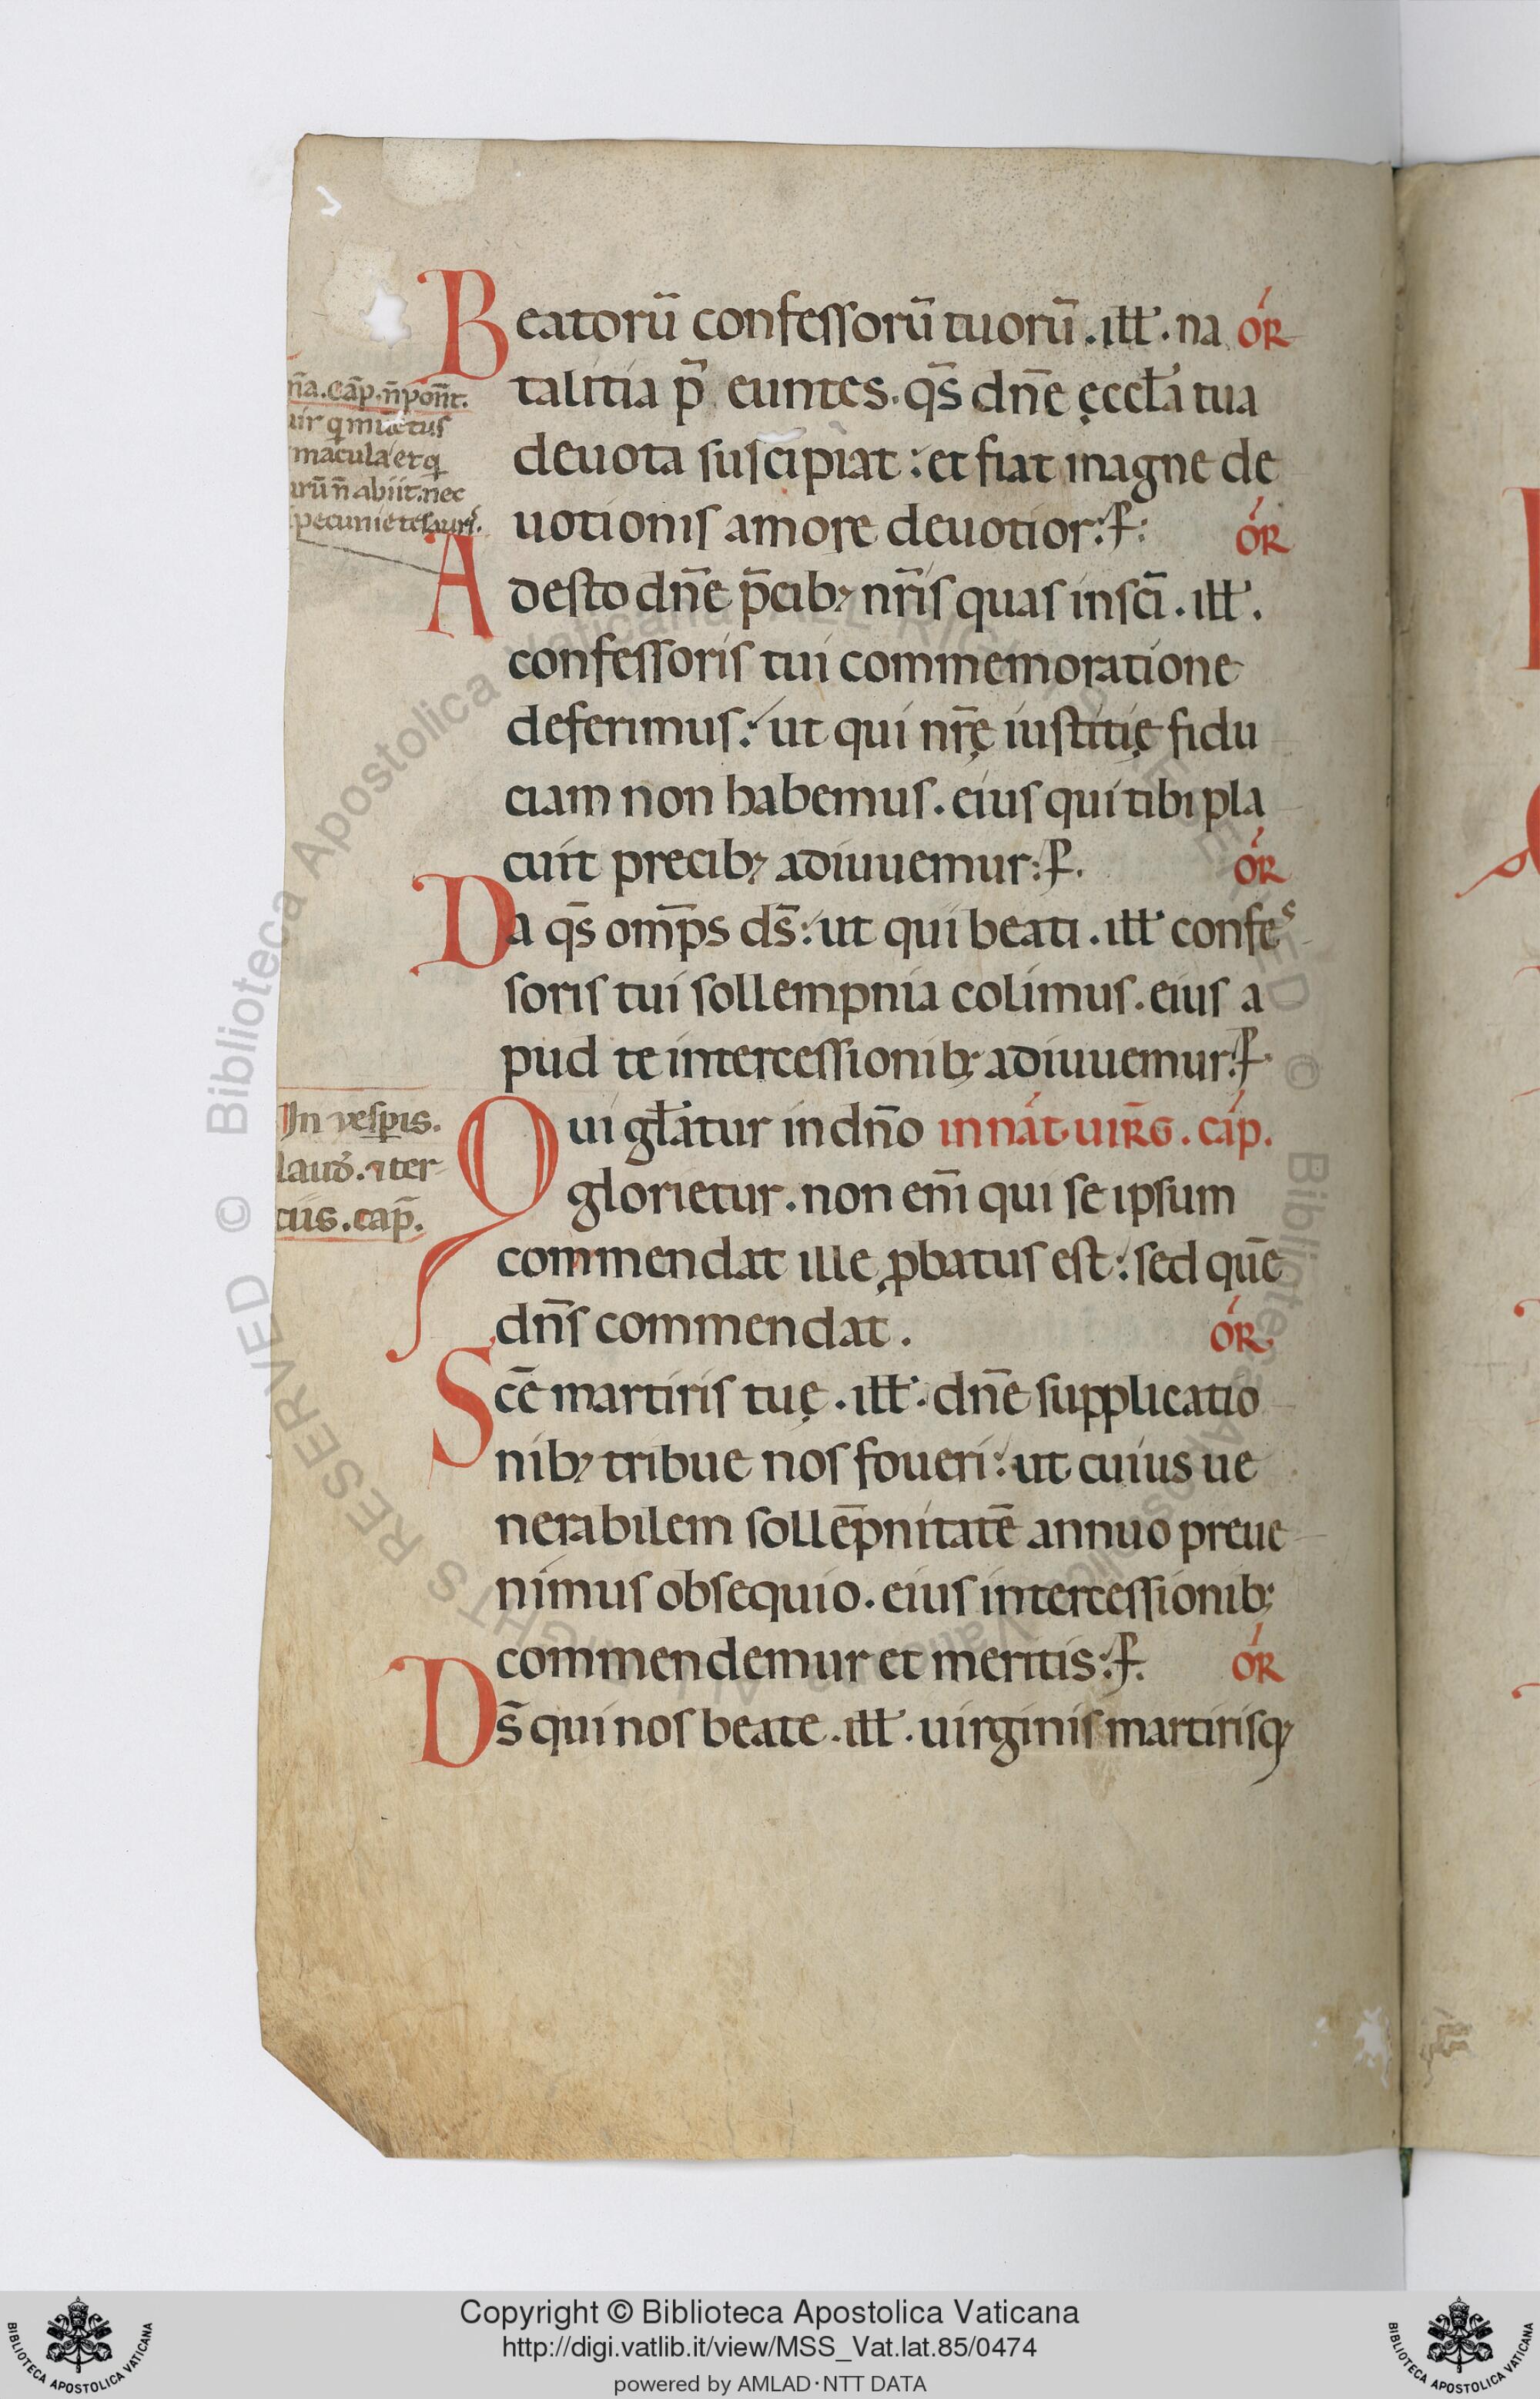 Beatorū confessorū tuorū . ill̄ . na OR
talitia p̄ euntes . qs̄ dn̄e ęccl̄a tua
deuota suscipiat : et fiat magne de
uotionis amore deuotior : P :
OR
Adesto dn̄e p̄cib; nr̄is quas in sc̄i . ill̄ .
confessoris tui commemoratione
deferimus : ut qui nr̄ę iustitię fidu
ciam non habemus . eius qui tibi pla
cuit precib; adiuuemur : P .
OR
Da qs̄ omp̄s ds̄ : ut qui beati . ill̄ confes
soris tui sollempnia colimus . eius a
pud te intercessionib; adiuuemur : P
Qui gl̄atur in dn̄o in nat uirg . cap .
glorietur . non eni̅ qui se ipsum
commendat ille ꝓbatus est : sed quē
dn̄s commendat .
OR
Sc̄e martiris tuę . ill̄ . dn̄e supplicatio
nib; tribue nos foueri : ut cuius ue
nerabilem sollēpnitatē annuo preue
nimus obsequio . eius intercessionib;
commendemur et meritis : P .
OR
Ds̄ qui nos beate . ill̄ . uirginis martirisq;
n̄a . cap̄ . n̄ pon̄t .
uir q
macula et q
n̄ abiit . nec
pecunie tesauris .
In vesp̱is .
laud . ⁊ ter
ciis . cap̄ .
© Biblioteca Apostolica Vaticana ALL RIGHTS RESERVED
Copyright © Biblioteca Apostolica Vaticana
http://digi.vatlib.it/view/MSS_Vat.lat.85/0474
powered by AMLAD·NTT DATA
BIBLIOTECA APOSTOLICA VATICANA
BIBLIOTECA APOSTOLICA VATICANA